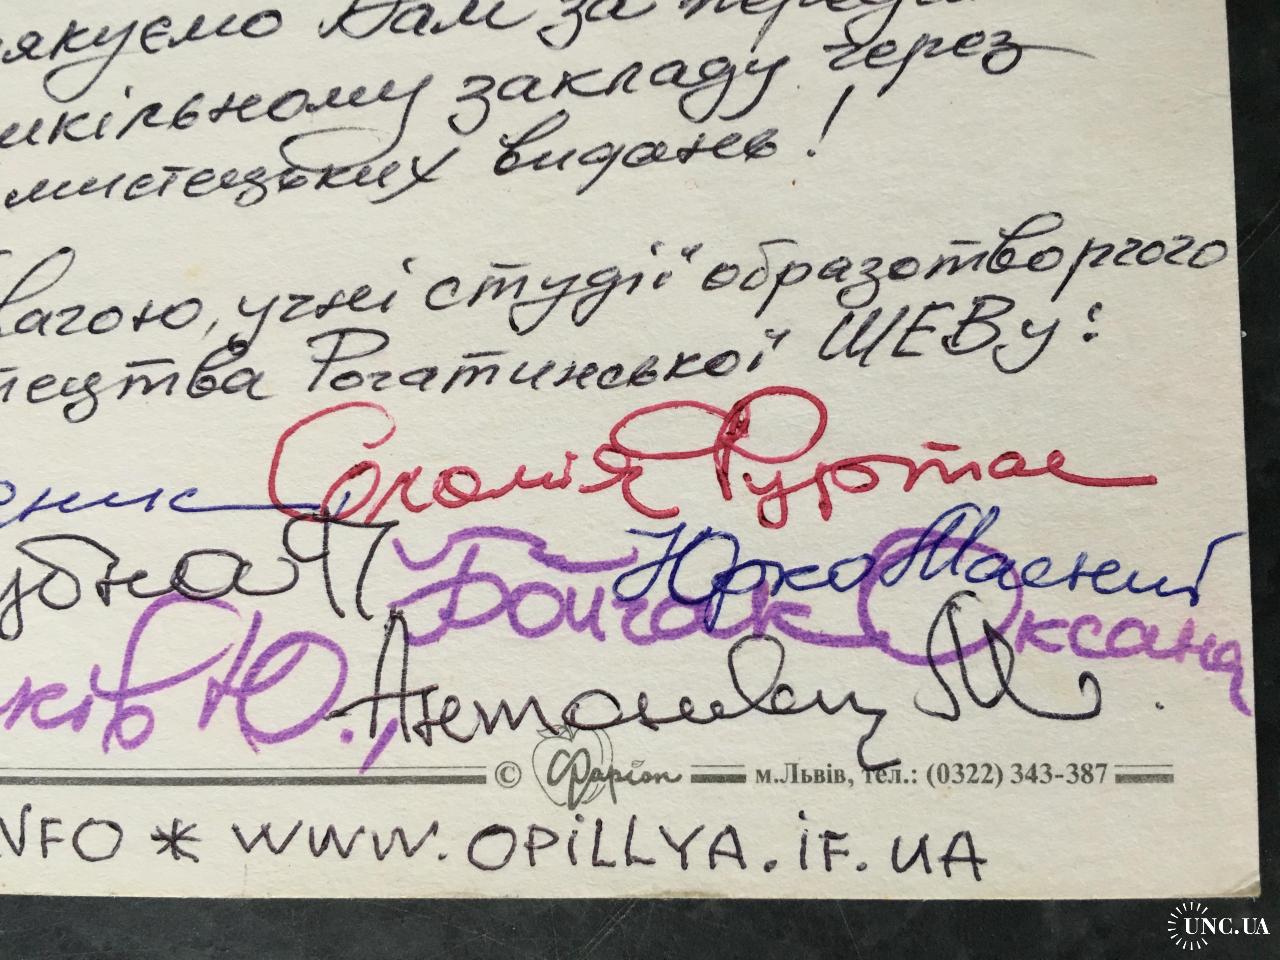 якуємо Вам за
шкільному закладу через
мистецьких видань!
вагою, учні студії образотворчого
тецтва Рогатинської ШЕВу:
Соломія Фуртак
Юрко Масний
Бойчак Оксана
ків Ю., Антонівец М.
© Фаріон м.Львів, тел.: (0322) 343-387
NFO * WWW.OPILLYA.IF.UA
UNC.UA